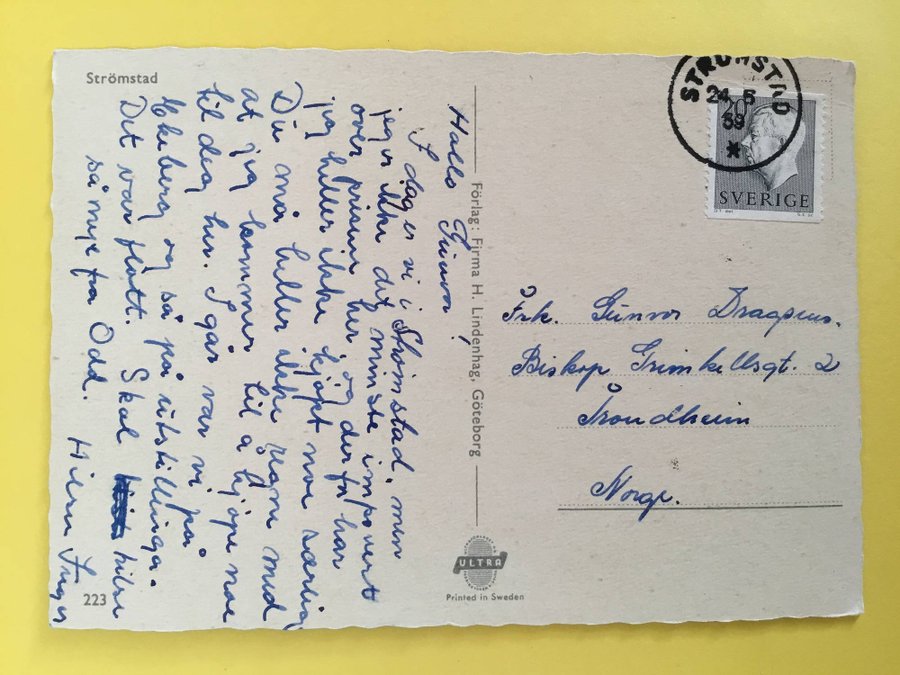 Strömstad
Hallo Gunvor,
I dag er vi i Strømstad, men
jeg er ikke det minste impovert
over prisene her og derfor har
jeg heller ikke kjøpt noe særlig
Du må heller ikke vane med
at jeg kommer til å kjøpe noe
til deg her. I går var vi på
Ekeberg og så på utstillinga.
Det var flott. Skal hilse
så mye fra Odd.
Hilsen
223
Förlag: Firma H. Lindenhag, Göteborg
ULTRA
Printed in Sweden
STRÖMSTAD
24. 5
59
20
SVERIGE
Frk. Gunvor
Biskop Grimkellsgt. 2
Trondheim
Norge.